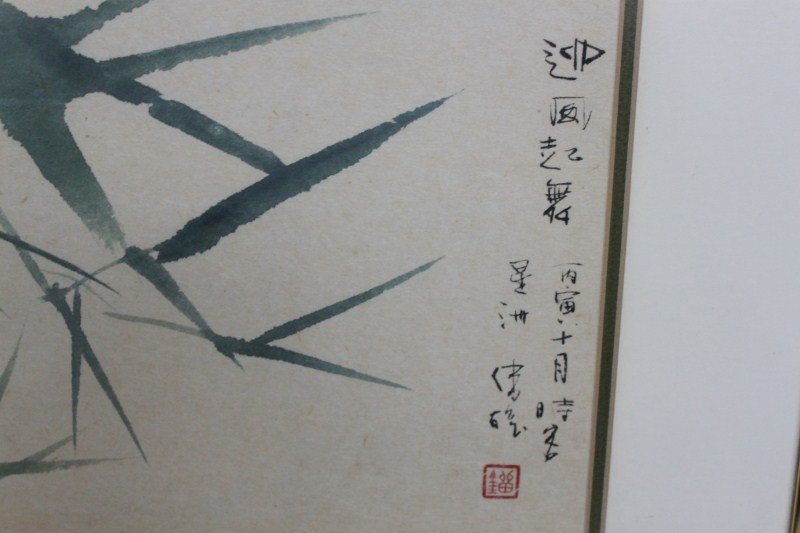 迎風起舞
丙寅十月時客
星洲